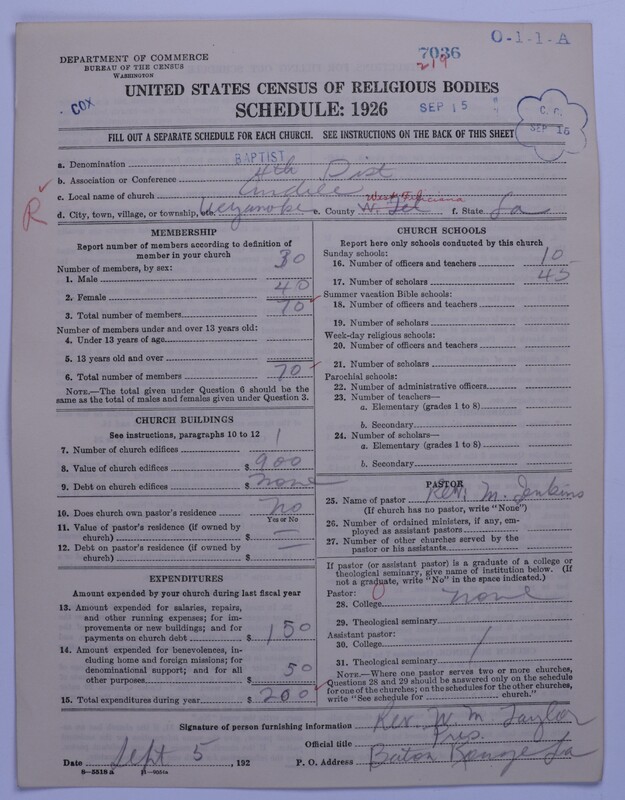 O-1-1-A
7036
219
DEPARTMENT OF COMMERCE
BUREAU OF THE CENSUS
WASHINGTON
UNITED STATES CENSUS OF RELIGIOUS BODIES
SCHEDULE: 1926
COX
SEP 15
C. C.
SEP 15
FILL OUT A SEPARATE SCHEDULE FOR EACH CHURCH. SEE INSTRUCTIONS ON THE BACK OF THIS SHEET
a. Denomination BAPTIST
b. Association or Conference 4th Dist
c. Local name of church
R
West Feliciana
d. City, town, village, or township, etc. Weyanoke e. County W. Fel f. State La
MEMBERSHIP
Report number of members according to definition of
member in your church
Number of members, by sex:
1. Male 30
2. Female 40
3. Total number of members 70
Number of members under and over 13 years old:
4. Under 13 years of age
5. 13 years old and over
6. Total number of members 70
NOTE.—The total given under Question 6 should be
same as the total of males and females given under Question 3.
CHURCH BUILDINGS
See instructions, paragraphs 10 to 12
7. Number of church edifices 1
8. Value of church edifices $ 900
9. Debt on church edifices $ none
10. Does church own pastor's residence no
Yes or No
11. Value of pastor's residence (if owned by
church) $ —
12. Debt on pastor's residence (if owned by
church) $ —
EXPENDITURES
Amount expended by your church during last fiscal year
13. Amount expended for salaries, repairs,
and other running expenses; for im-
provements or new buildings; and for
payments on church debt $ 150
14. Amount expended for benevolences, in-
cluding home and foreign missions; for
denominational support; and for all
other purposes $ 50
15. Total expenditures during year $ 200
CHURCH SCHOOLS
Report here only schools conducted by this church
Sunday schools:
16. Number of officers and teachers 10
17. Number of scholars 45
Summer vacation Bible schools:
18. Number of officers and teachers
19. Number of scholars
Week-day religious schools:
20. Number of officers and teachers
21. Number of scholars
Parochial schools:
22. Number of administrative officers
23. Number of teachers—
a. Elementary (grades 1 to 8)
b. Secondary
24. Number of scholars—
a. Elementary (grades 1 to 8)
b. Secondary
PASTOR
25. Name of pastor Rev. M. Jenkins
(If church has no pastor, write "None")
26. Number of ordained ministers, if any, em-
ployed as assistant pastors
27. Number of other churches served by the
pastor or his assistants
If pastor (or assistant pastor) is a graduate of a college or
theological seminary, give name of institution below. (If
not a graduate, write "No" in the space indicated.)
Pastor:
28. College none
29. Theological seminary
Assistant pastor:
30. College
31. Theological seminary
NOTE.—Where one pastor serves two or more churches,
Questions 28 and 29 should be answered only on the schedule
for one of the churches; on the schedules for the other churches,
write "See schedule for church."
Signature of person furnishing information Rev. W. M. Taylor
Official title Pres.
Date Sept 5, 192 P. O. Address Baton Rouge La
8-5518a